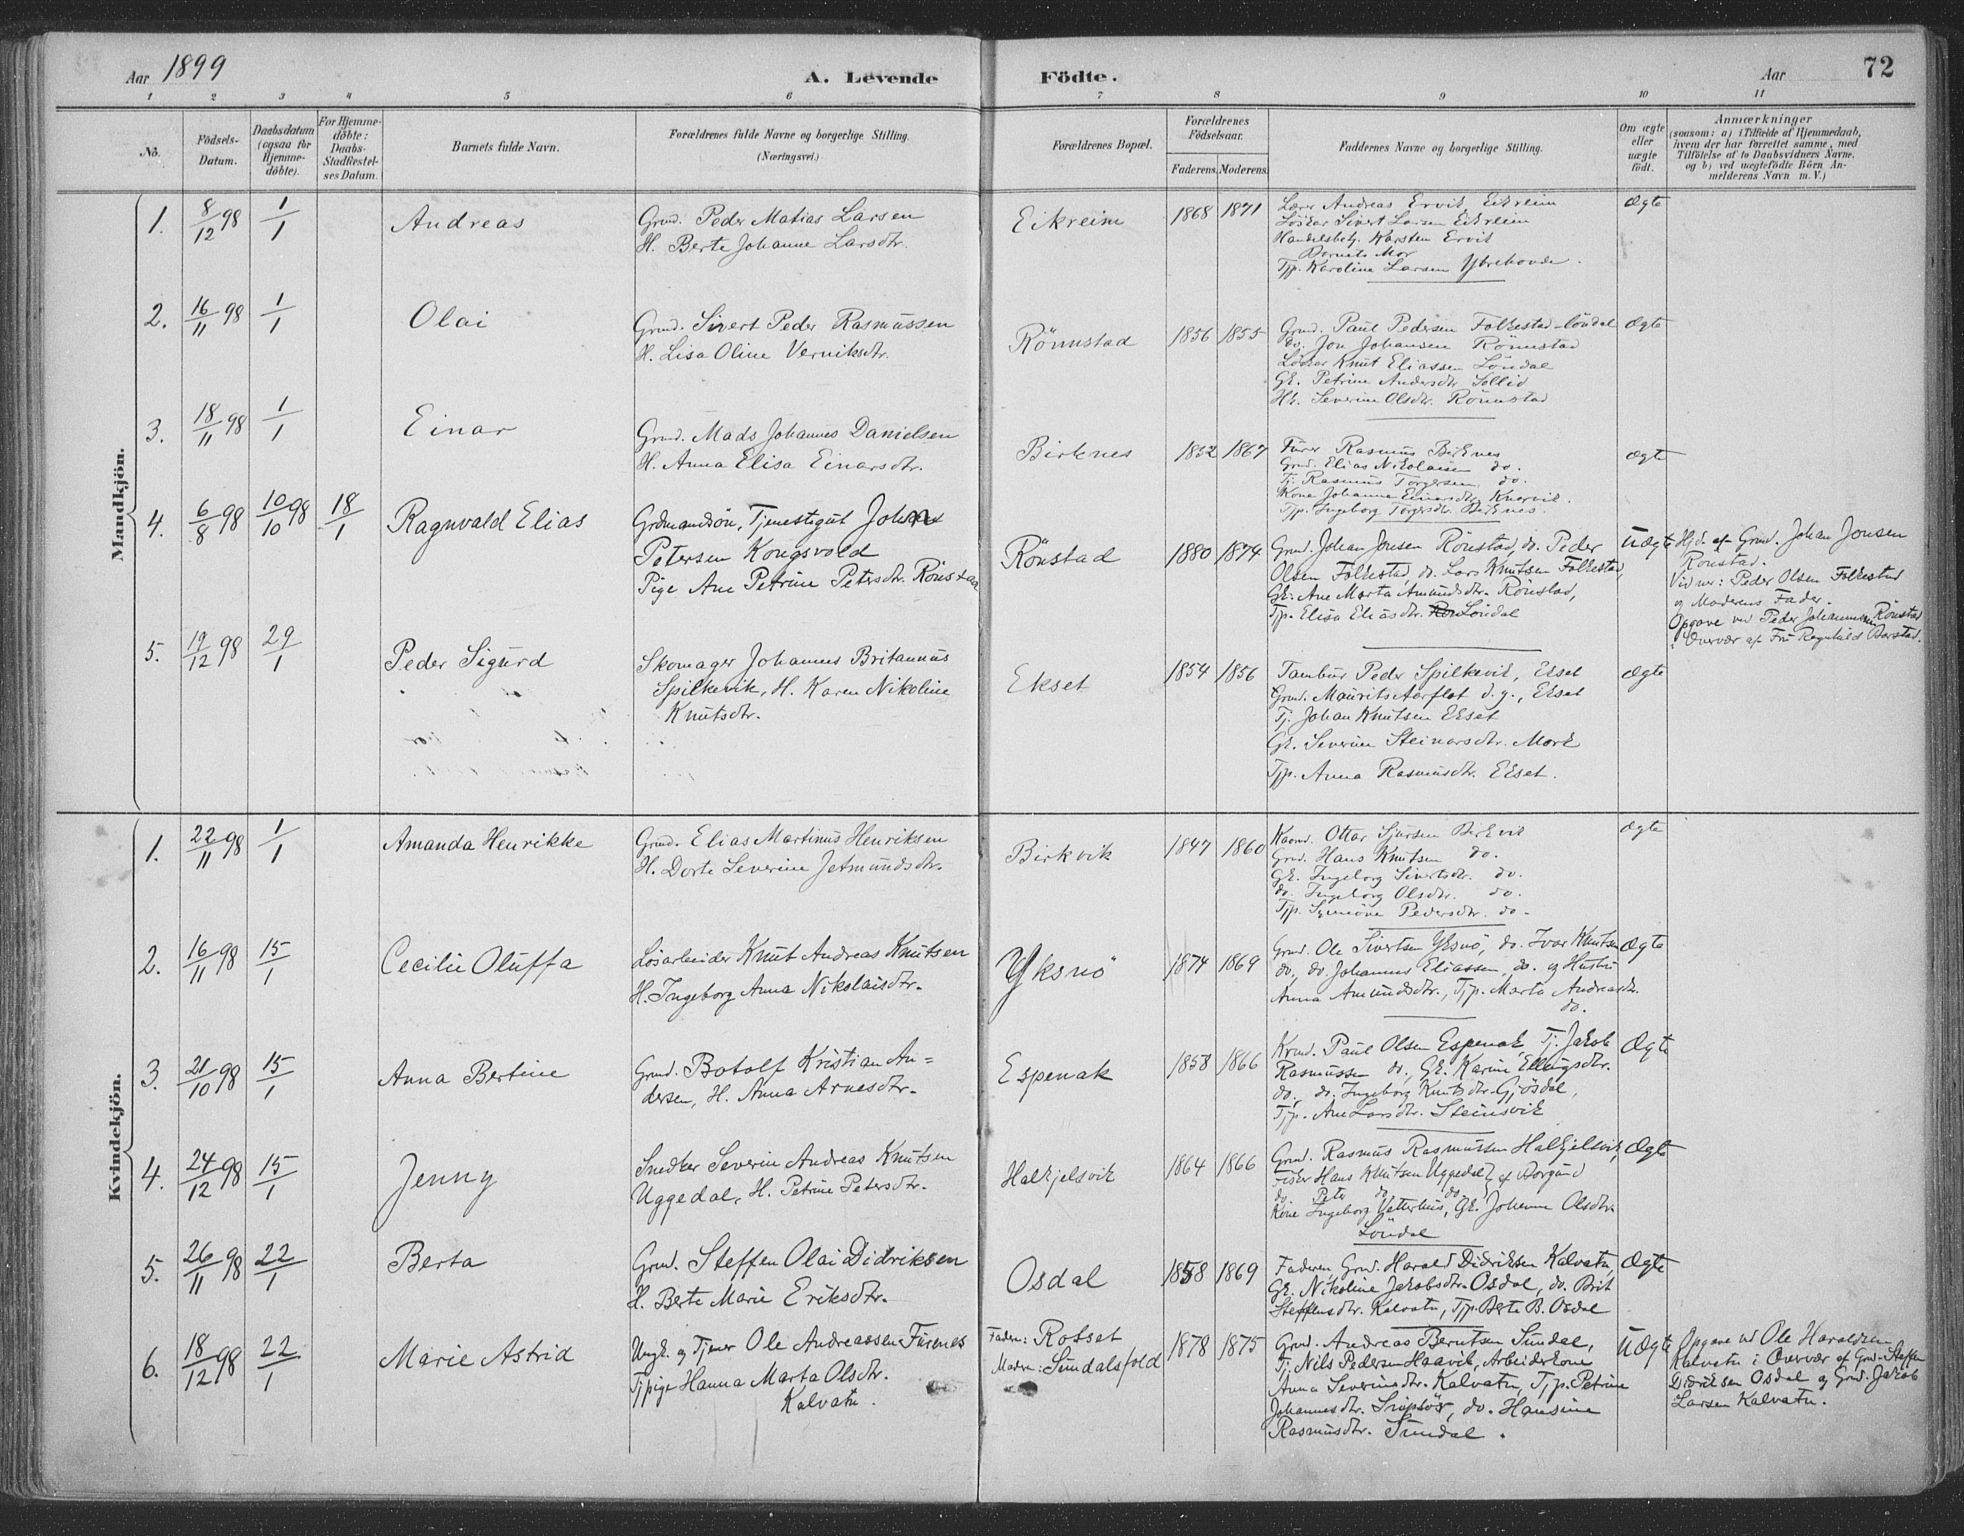 Aar 1899
A. Levende Födte.
Aar
72
1 2 3 4 5 6 7 8 9 10 11
No.
Födsels-Datum.
Daabsdatum (ogsaa for Hjemme-döbte).
For Hjemme-döbte: Daabs-Stadfæstel-ses Datum.
Barnets fulde Navn.
Forældrenes fulde Navne og borgerlige Stilling.
(Næringsvei.)
Forældrenes Bopæl.
Forældrenes Födselsaar.
Faderens. Moderens.
Faddernes Navne og borgerlige Stilling.
Om ægte eller uægte födt.
Anmærkninger
(saasom: a) i Tilfælde af Hjemmedaab,
hvem der har forrettet samme, med
Tilföielse af to Daabsvidners Navne,
og b) ved uægtefödte Börn An-
melderens Navn m. V.)
Mandkjön.
1. 8/12 98 1/1 Andreas
Grmd. Peder Matias Larsen
H. Berte Johanne Larsdtr.
Eikreim 1868 1871
Lærer Andreas Ervik Eikreim
Löskar Sivert Larsen Eikreim
Handelsbetj. Karsten Ervik
Barnets Mor
Tjp. Karoline Larsen Ytrehovde.
Ægte
2. 16/11 98 1/1 Olai
Grmd. Sivert Peder Rasmussen
H. Lisa Oline Verniksdtr.
Rönnstad 1856 1855
Grmd. Paul Pedersen Folkestad-löndal
do. Jon Johansen Rönnstad
Löskar Knut Eliassen Löndal
Gk. Petrine Andersdtr. Sollid
Hk. Severine Olsdtr. Rönnstad
Ægte
3. 18/11 98 1/1 Einar
Grmd. Mads Johannes Danielsen
H. Anna Elisa Einarsdtr.
Birknes 1852 1867
Furer Rasmus Birknes
Grmd. Elias Nikolaisen do.
Tj. Rasmus Torgersen do.
Kone Johanna Einarsdtr. Knervik.
Tjp. Ingeborg Torgersdtr. Birknes.
Ægte
4. 6/8 98 10/10 98 18/1 Ragnvald Elias
Grdmandsön, Tjenestegut Johan
Petersen Kongsvold
Pige Ane Petrine Petersdtr. Rönstad
Rönstad 1880 1874
Grmd. Johan Jonsen Rönstad, do. Peder
Olsen Folkestad, do. Lars Knutsen Folkestad,
Gk. Ane Marta Amundsdtr. Rönstad,
Tjp. Elisa Eliasdtr. Löndal
Uægte
Hjd. af Grmd. Johan Jonsen
Rönstad.
Vidner: Peder Olsen Folkestad
og Moderens Fader.
Opgave ved Peder Johannessen Rönstad
i Overvær af Fru Ragnhild Barstad.
5. 19/12 98 29/1 Peder Sigurd
Skomager Johannes Britannus
Spilkevik, H. Karen Nikoline
Knutsdtr.
Ekset 1854 1856
Tambur Peder Spilkevik, Ekset
Grmd. Maurits Aarflot d. y., Ekset
Tj. Johan Knutsen Ekset
Gk. Severine Steinarsdtr. Mork
Tjp. Anna Rasmusdtr. Ekset.
Ægte
Kvindekjön.
1. 22/11 98 1/1 Amanda Henrikke
Grmd. Elias Martinus Henriksen
H. Dorte Severine Jetmundsdtr.
Birkvik 1847 1860
Kaarmd. Ottar Sjursen Birkvik
Grmd. Hans Knutsen do.
Gk. Ingeborg Sivertsdtr. do.
do. Ingeborg Olsdtr. do.
Tjp. Synnöve Pedersdtr. do.
Ægte
2. 16/11 98 15/1 Cecilie Oluffa
Lösarbeider Knut Andreas Knutsen
H. Ingeborg Anna Nikolaisdtr.
Yksnö 1874 1869
Grmd. Ole Sivertsen Yksnö, do. Ivar Knutsen
do, do. Johannes Eliassen, do. og Hustru
Anna Amundsdtr., Tjp. Marta Andreasdtr.
do.
Ægte
3. 21/10 98 15/1 Anna Bertine
Grmd. Botolf Kristian An=
dersen, H. Anna Arnesdtr.
Espenak 1858 1866
Krmd. Paul Olsen Espenak, Tj. Jakob
Rasmussen do., Gk. Karine Ellingsdtr.
do, do. Ingeborg Knutsdtr. Gjösdal,
Tjp. Ane Larsdtr. Steinsvik
Ægte
4. 24/12 98 15/1 Jenny
Snedker Severin Andreas Knutsen
Uggedal, H. Petrine Petersdtr.
Halkjelsvik 1864 1866
Grmd. Rasmus Rasmussen Halkjelsvik,
Fisker Hans Knutsen Uggedal af Borgund
do. Peter do do.
Kone Ingeborg Vatterhus, Gk. Johanne Olsdtr.
Löndal
Ægte
5. 26/11 98 22/1 Berta
Grmd. Steffen Olai Didriksen
H. Berte Marie Eriksdtr.
Osdal 1858 1869
Faderen Grmd. Harald Didriksen Kalvatn,
Gk. Nikoline Jakobsdtr. Osdal, do. Brit
Steffensdtr. Kalvatn, Tjp. Berte B. Osdal
Ægte
6. 18/12 98 22/1 Marie Astrid
Ungk. og Tjener Ole Andreassen Furenes
Tjpige Hanna Marta Olsdtr.
Kalvatn.
Faderen: Rotset
Moderen: Sundalsfold
1878 1875
Grmd. Andreas Berntsen Sundal,
Tj. Nils Pedersen Haavik, Arbeiderkone
Anna Severinsdtr. Kalvatn, Tjp. Petrine
Johannesdtr. Snipsöir, do. Hansine
Rasmusdtr. Sundal.
Uægte
Opgave ved Ole Haraldsen
Kalvatn i Overvær af Grmd. Steffen
Didriksen Osdal og Grmd. Jakob
Larsen Kalvatn.